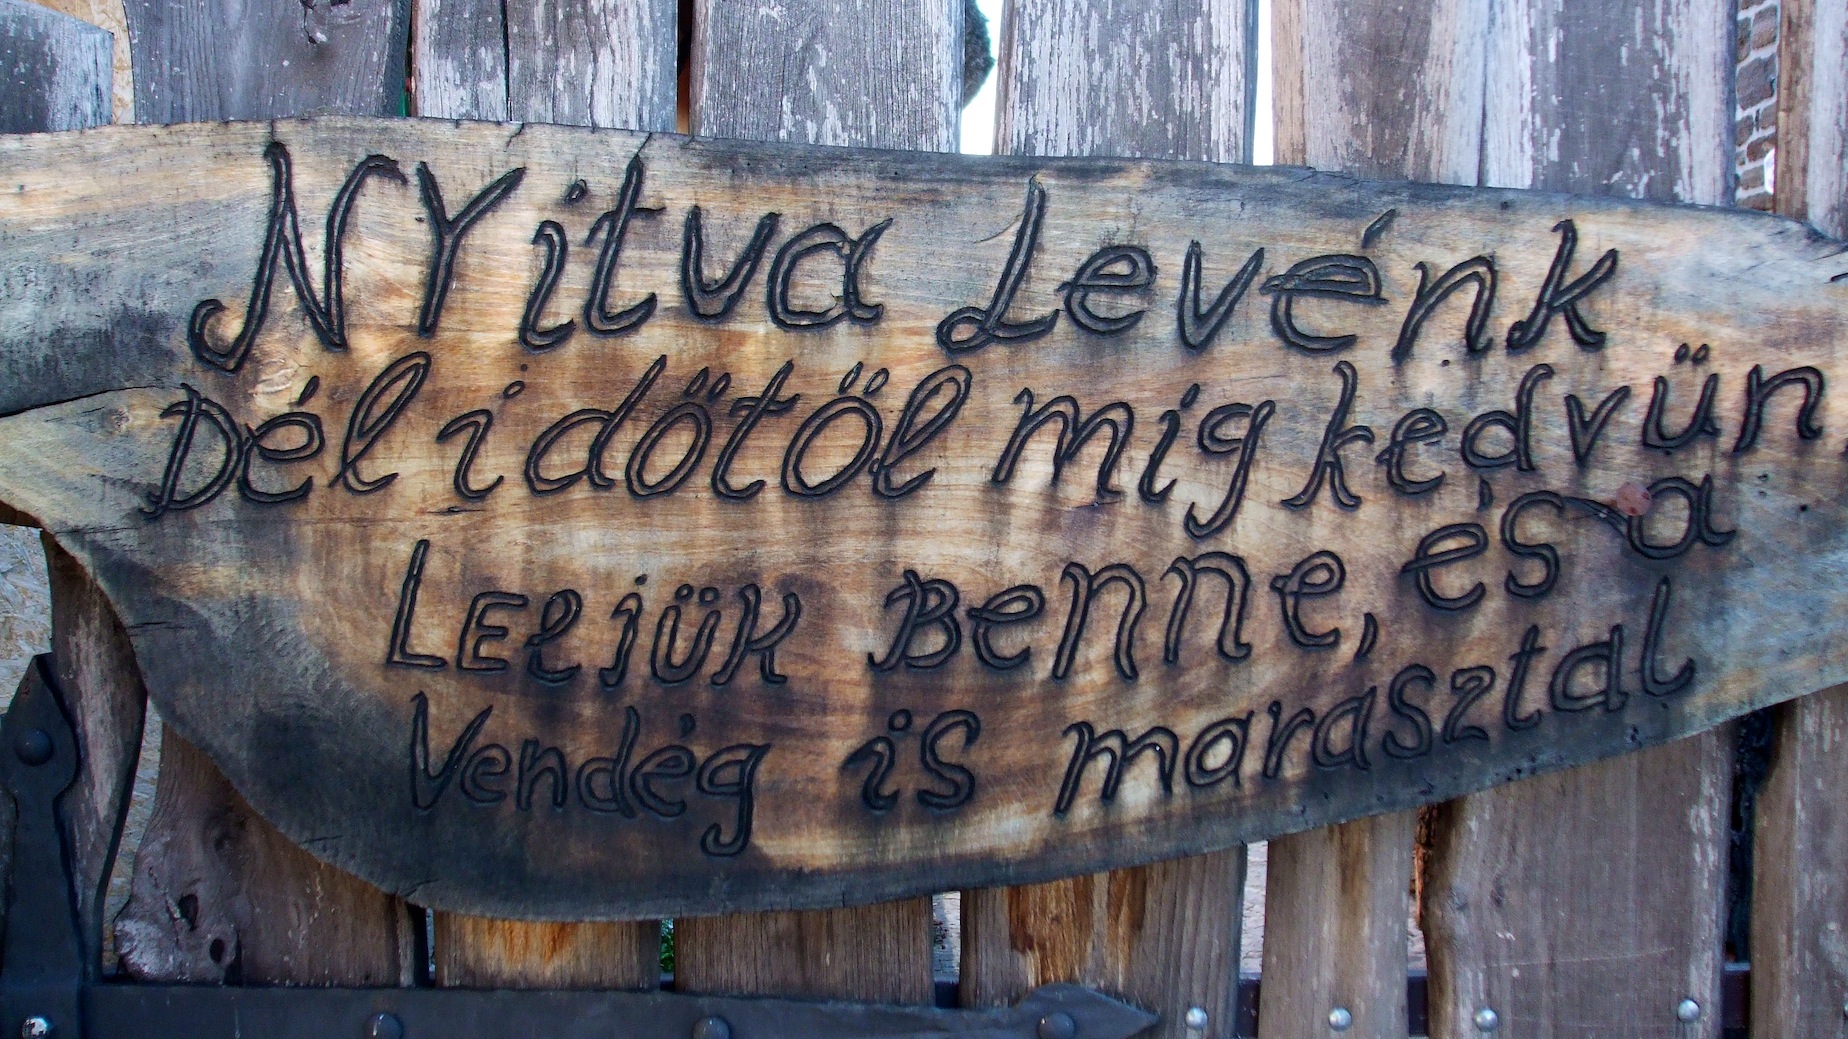 NYitva Levénk
Dél időtől mig kedvün
LEeljük Benne, és a
Vendég is marasztal